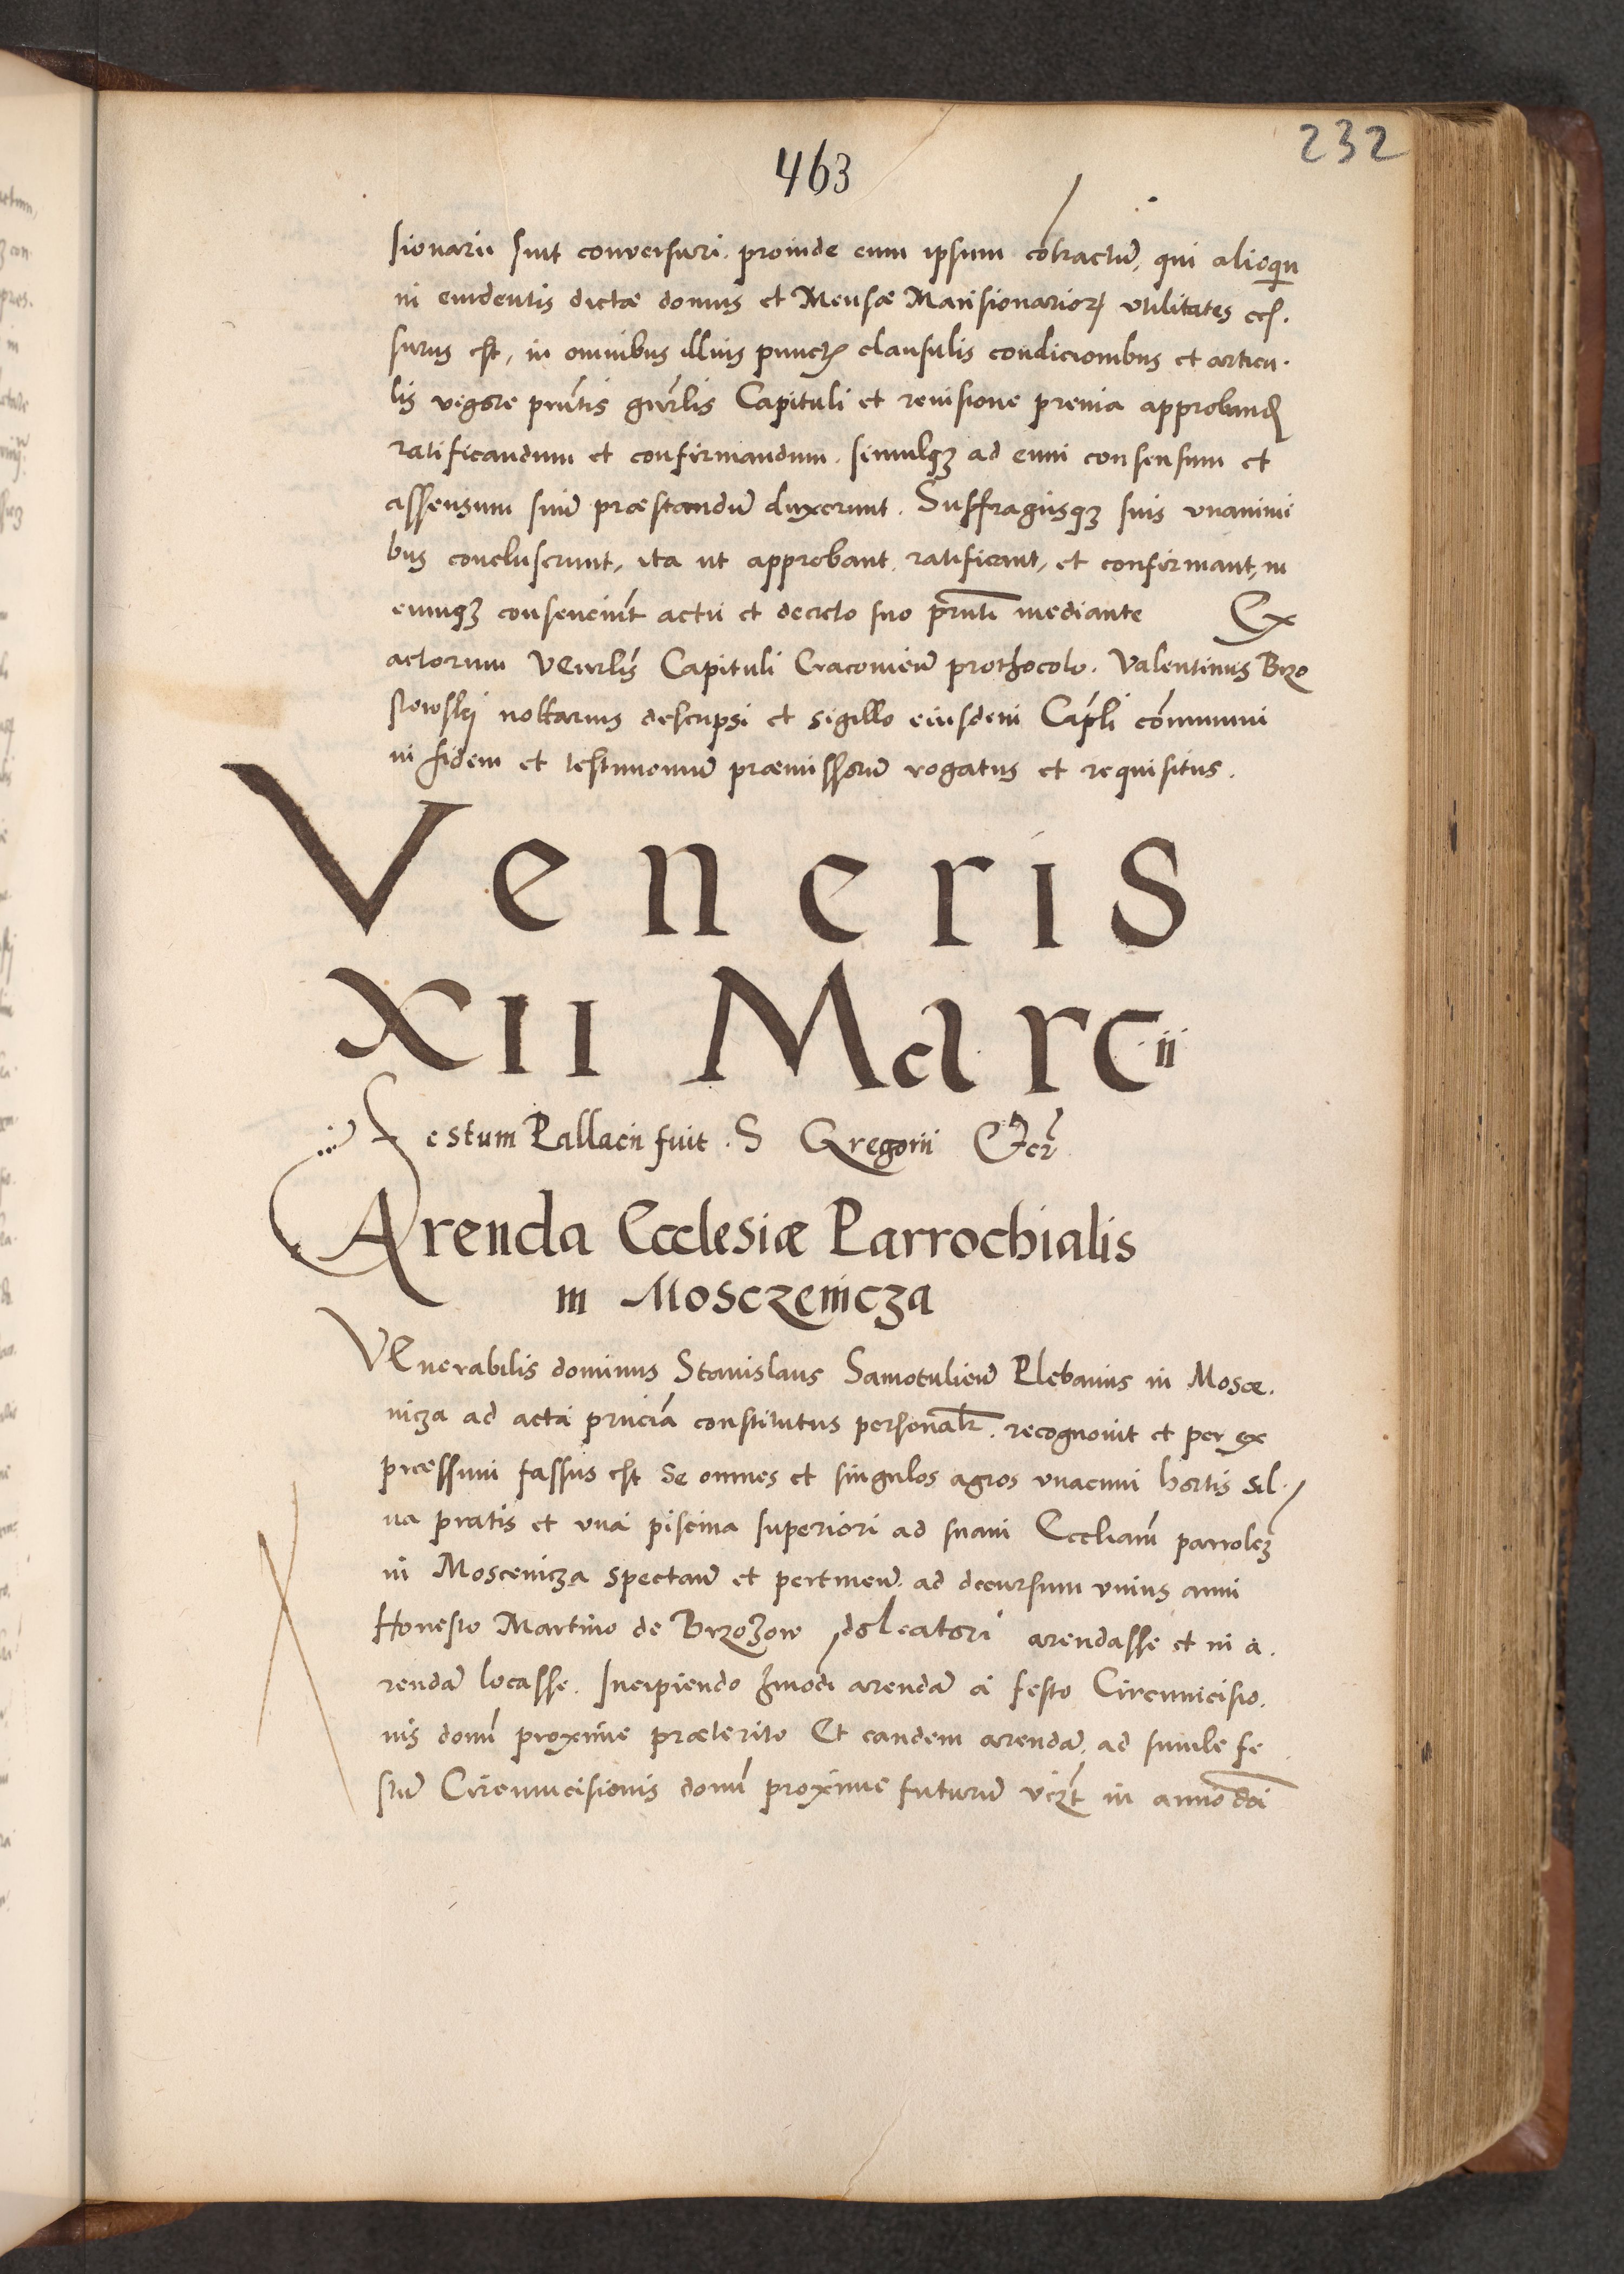 463
232
sionarii sint conversuri. proinde eum ipsum cōtractū, qui alioqn
in euidentis dictæ domus et Mensæ Mansionarior utilitates ces.
surus est, in omnibus illius punctis clausulis condicionibus et articu.
lis vigore pn̄tis gnr̄lis Capituli et reuisione preuia approband
ratificandum et confirmandum. simulqȝ ad eum consensum et
assensum suū præstandū duxerunt. Suffragiisqȝ suis vnanimi
bus concluserunt, ita ut approbant, ratificant, et confirmant, in
eumqȝ conseneiūt actu et decreto suo pn̄ti mediante Ex
actorum Venr̄lis Capituli Cracovien̄ prothocolo. Valentinus Brzo
stowskij nottarius descripsi et sigillo eiusdem Cap̄li cōmmuni
in fidem et testimoniū præmissorū rogatus et requisitus.
Veneris
XII Marcii
Festum Pallacii fuit . S Gregorii Etcr̄
Arenda Ecclesiæ Parrochialis
in Mosczenicza
VEnerabilis dominus Stanislaus Samotulien̄ Plebanus in Mosce.
nicza ad acta pn̄cia constitutus personalr̄. recognouit et per ex
præssum fassus est se omnes et singulos agros vnacum hortis sil.
ua pratis et vna piscina superiori ad suam Eccliam̄ parrolcȝ
in Moscenicza spectan̄ et pertinen̄. ad decursum vnius anni
Honesto Martino de Brzozow doleatori arendasse et in a.
rendā locasse. Incipiendo hmōdi arendā a festo Circumcisio.
nis domī proxime præterito Et eandem arendā, ad simile fe
stū Circumcisionis domī proxime futurū vizt̄ in anno dni